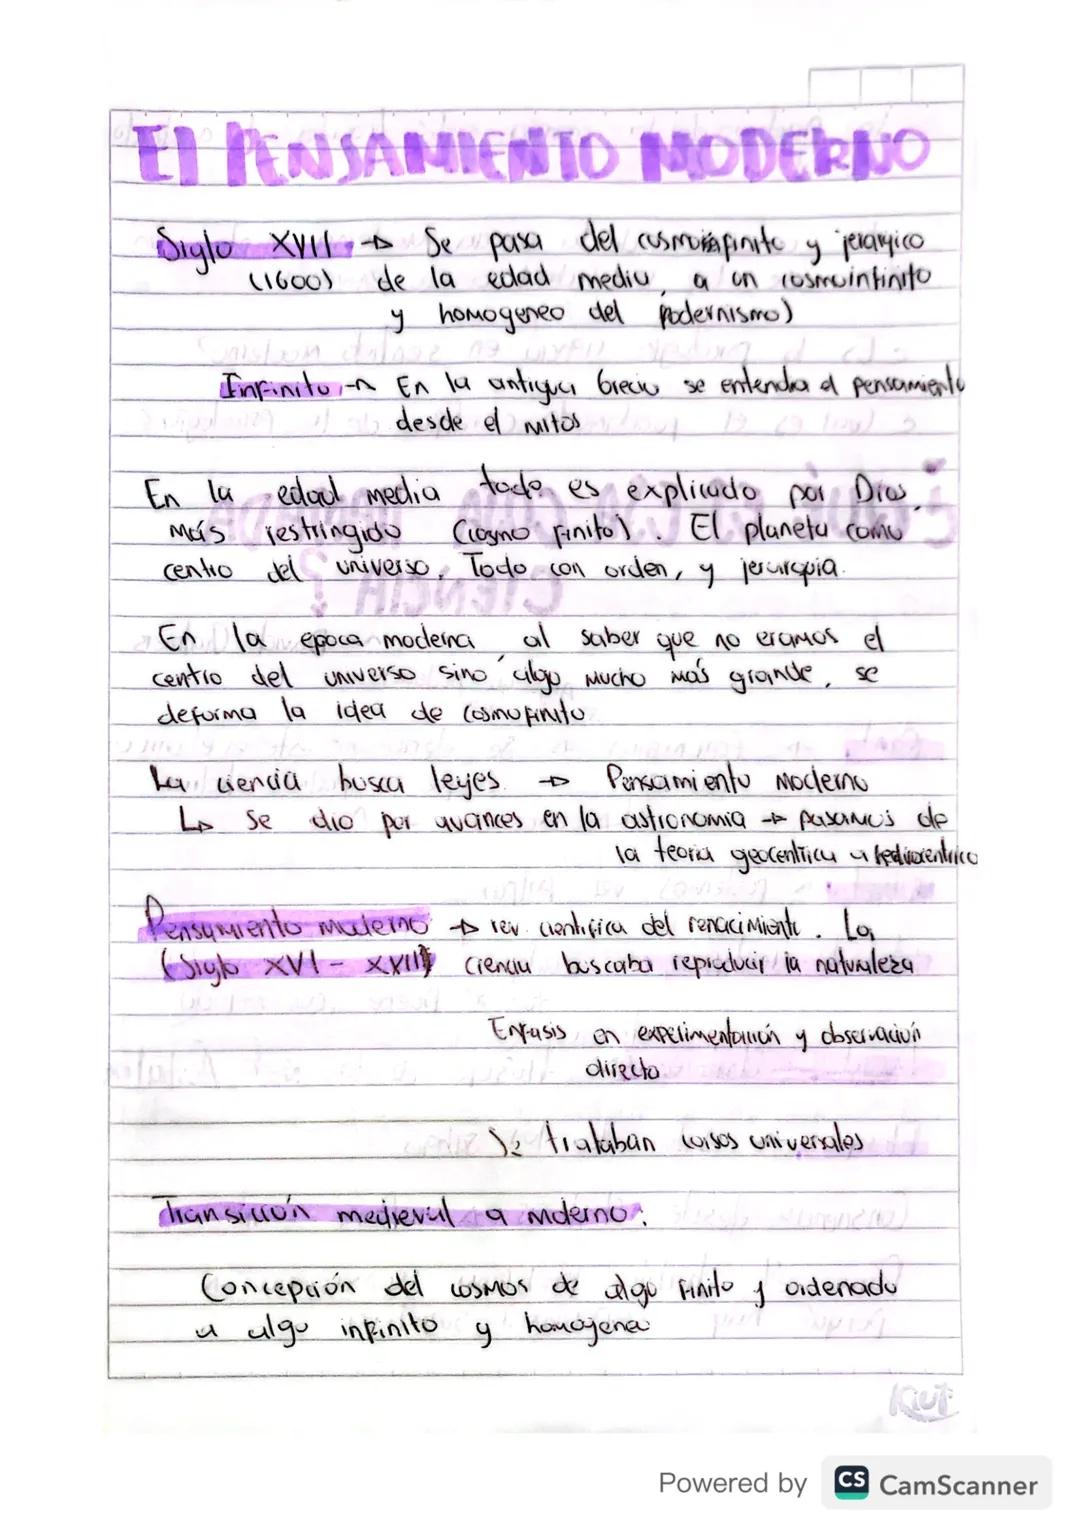 El PENSAMIENTO MODERNO
Siglo XVII → Se pasa del cosmofinito y jerarquico
(1600) de la edad media, a un cosmoinfinito
y homogeneo del modernismo)
Infinito → En la antigua Grecia se entendia el pensamiento
desde el mitos
En la edad media todo es explicado por Dios,
más restringido (cosmo finito). El planeta como
centro del universo. Todo con orden, y jerarquia.
En la epoca moderna, al saber que no eramos el
centro del universo sino algo mucho más grande, se
deforma la idea de cosmofinito
La ciencia busca leyes. → Pensamiento Moderno
↳ Se dio por avances en la astronomia → pasamos de
la teoria geocentrica a
Pensamiento moderno → rev. cientifica del renacimiento. La
(Siglo XVI - XVIII) ciencia buscaba reproducir la naturaleza
Enfasis en experimentación y observación
directa
Se trataban cosas universales
Transición medieval a moderno:
Concepción del cosmos de algo finito y ordenado
a algo infinito y homogeneo
Kiut
Powered by CS CamScanner